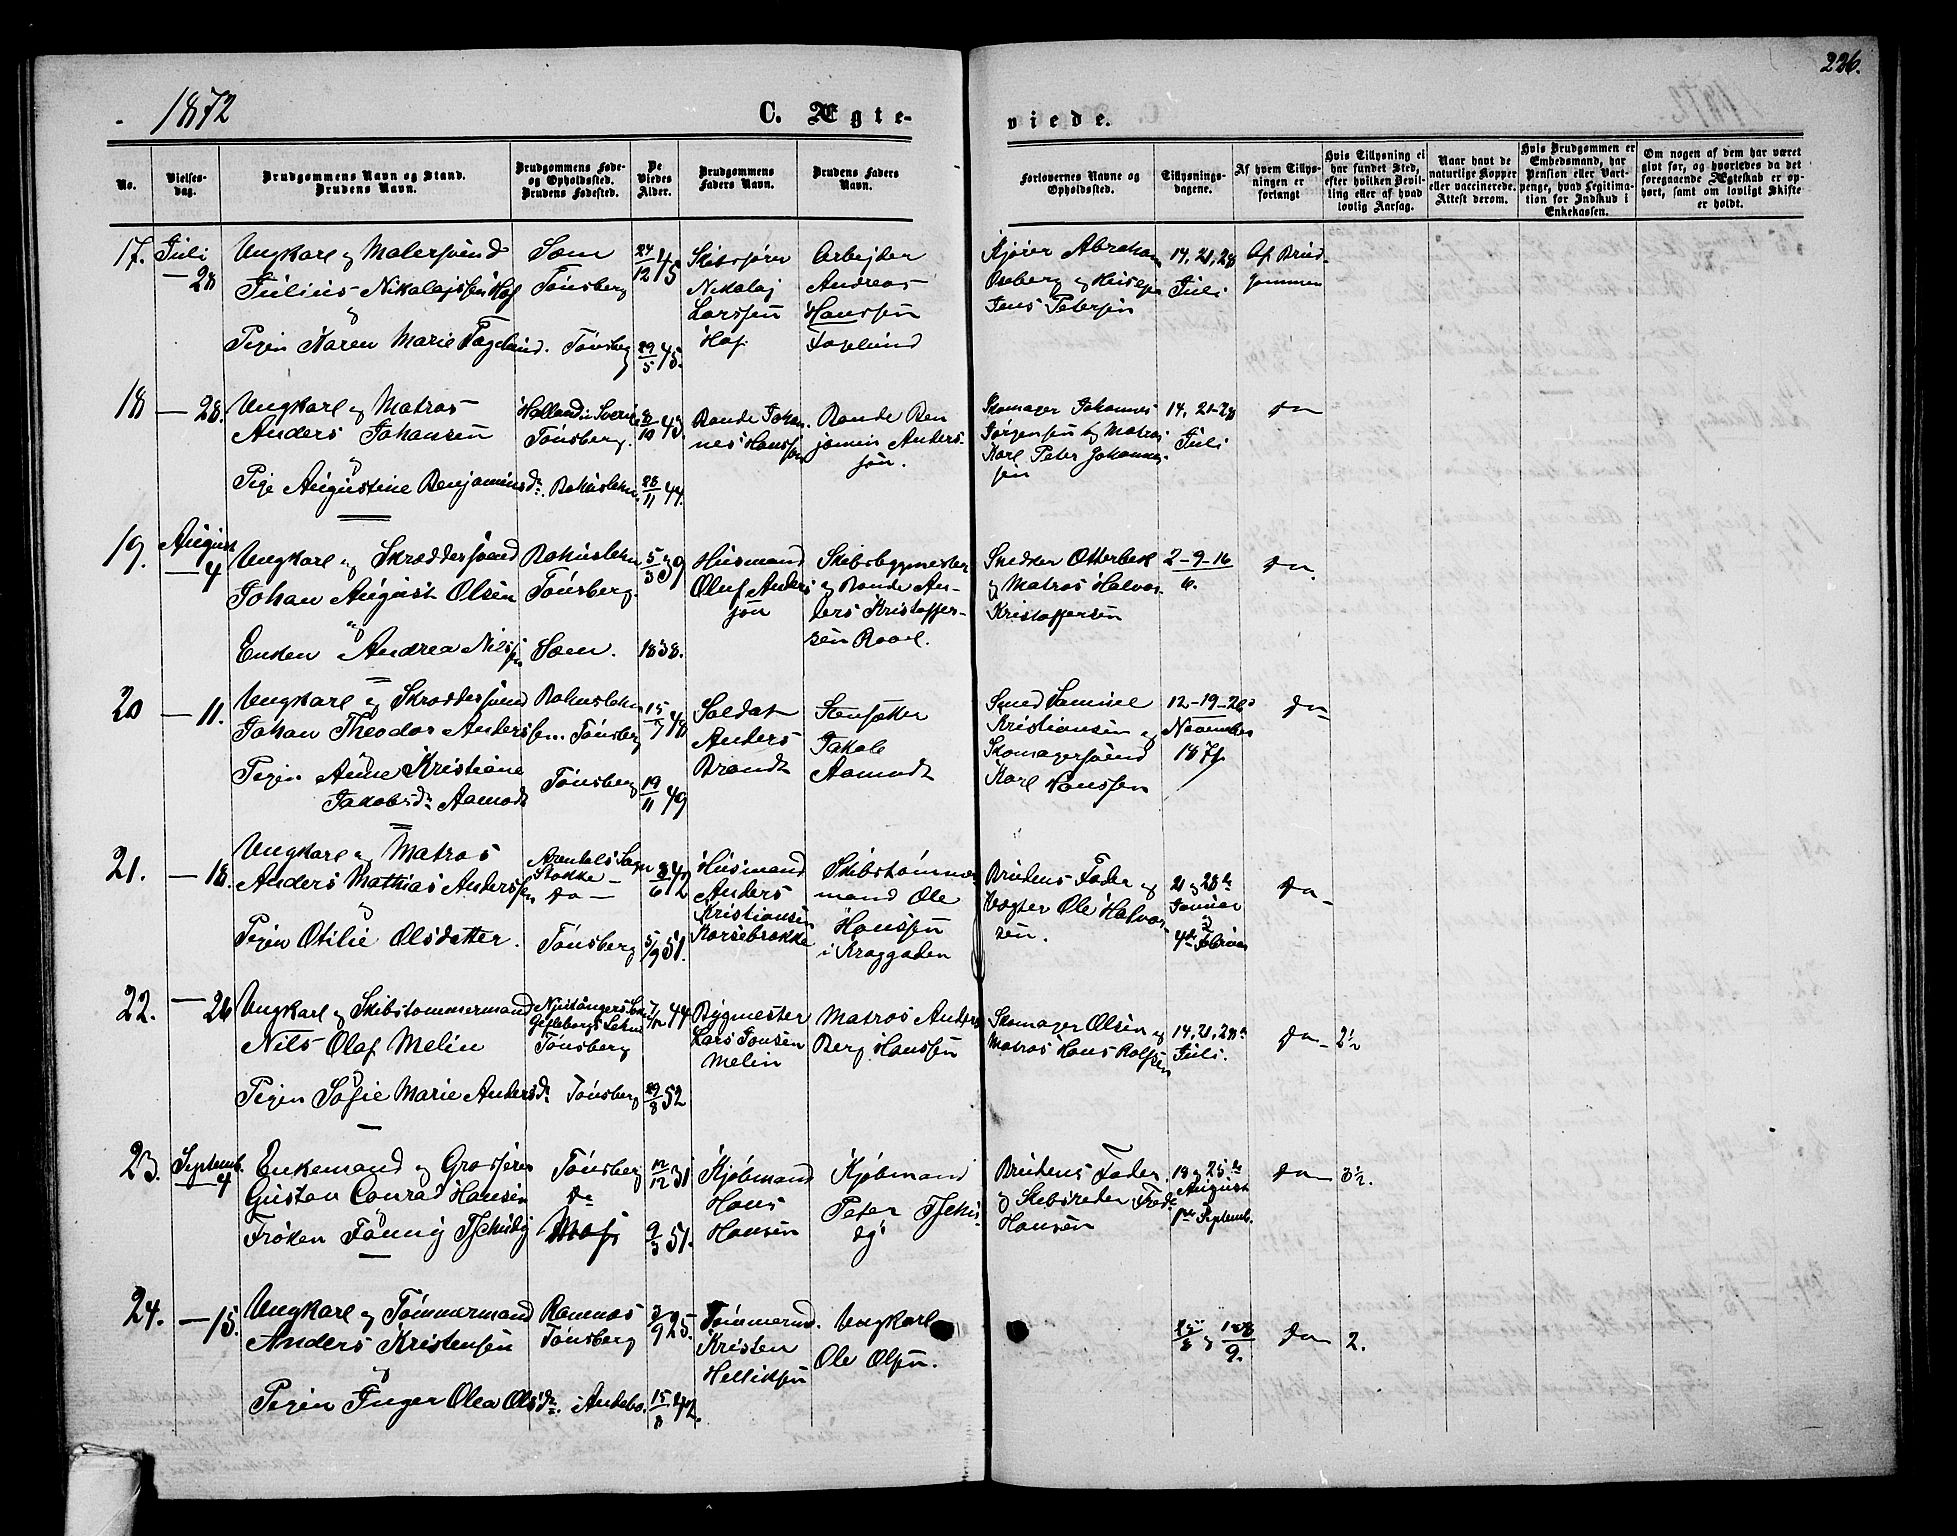 226.
1872
C. Ægte-
viede.
No.
Vielses-
dag.
Brudgommens Navn og Stand.
Brudens Navn.
Brudgommens Føde-
og Opholdssted.
Brudens Fødested.
De
Viedes
Alder.
Brudgommens
Faders Navn.
Brudens Faders
Navn.
Forlovernes Navne og
Opholdssted.
Tillysnings-
dagene.
Af hvem Tillys-
ningen er
forlangt
Hvis Tillysning ei
har fundet Sted,
efter hvilken Bevil-
ling eller af hvad
lovlig Aarsag.
Naar havt de
naturlige Kopper
eller vaccinerede.
Attest derom.
Hvis Brudgommen er
Embedsmand, har
Pension eller Vart-
penge, hvad Legitima-
tion for Indskud i
Enkekassen.
Om nogen af dem har været
givt før, og hvorledes da det
foregaaende Ægteskab er op-
hørt, samt om lovligt Skifte
er holdt.
17. Juli
— 28
Ungkarl og Malersvend
Julius Nikolajsen Hof
og
Pigen Karen Marie
Sæm
Tønsberg
Tønsberg
24/12 45
29/5 45.
Skibsfører
Nikolaj
Larssen
Hof
Arbejder
Andreas
Hanssen
Kjører Abraham
Oseberg og
Jens Petersen
14, 21, 28
Juli
Af Brud-
gommen
18 — 28.
Ungkarl og Matros
Anders Johansen
og
Pige Augustine Benjaminsdr.
Halland i Sverige
Tønsberg.
Bohuslehn.
43
28/11 44.
Bonde Johan-
nes Hanssen
Bonde Ben
jamin Anders-
søn.
Skomager Johannes
Jørgensen og Matros
Karl Peter Johannes-
sen
14, 21-28
Juli
do
19. August
— 4
Ungkarl og Skræddersvend
Johan August Olsen
og
Enken Andrea Nilssen
Bohuslehn
Tønsberg.
Sæm.
5/3 39
1838.
Husmand
Oluf Anders
søn
Skibsbygmester
og Bonde An-
ders Kristoffer-
sen
Snedker Otterbek
og Matros Halvor
Kristoffersen
2-9-16
6.
do.
20 — 11.
Ungkarl og Skræddersvend
Johan Theodor Anderssen.
Pigen Anne Kristiane
Jakobsdr. Aamodt
Bohuslehn
Tønsberg
Tønsberg
15/7 48
19/11 49
Soldat
Anders
Brandt
Jakob
Aamodt
Smed Samuel
Kristiansen og
Skomagersvend
Karl Hanssen
12-19-26
November
1871
do-
21. — 18.
Ungkarl og Matros
Anders Mathias Anderssen
og
Pigen Otilie Olsdatter.
Stokke —
do —
Tønsberg
8/6 42
5/9 51.
Husmand
Anders
Kristiansen
Korsebrekke
Skibstømmer
mand Ole
Hanssen
i
Brudens Fader og
Vægter Ole Halvor-
sen.
21 og 28de
Januar
og
4de Februar
do-
22. — 26
Ungkarl og Skibstømmermand
Nils Olaf Melin
og
Pigen Sofie Marie Andersdr.
Tønsberg
Tønsberg
44
29/8 52
Bygmester
Lars Jonsen
Melin
Matros Anders
Berg Hanssen
Skomager Olsen og
Matros Hans
14, 21, 28de
Juli.
do- 2½
23. Septemb.
4
Enkemand og Grosserer
Gustav Conrad Hansen
og
Frøken Fanny
Tønsberg
do
Moss
12/12 31
9/3 51.
Kjøbmand
Hans
Hansen
Kjøbmand
Peter
Brudens Fader
og Skibsreder Fredr
Hansen
18 og 25de
August
1ste Septemb.
do — 3½.
24. — 15.
Ungkarl og Tømmermand
Anders Kristensen
og
Pigen Inger Olea Olsdr.
Ramnæs
Tønsberg
i Andebo.
3/9 25.
15/8 42.
Tømmermd.
Kristen
Helliksen
Ungkarl
Ole Olsen.
25/8 og 1 & 8/9.
do — 2.